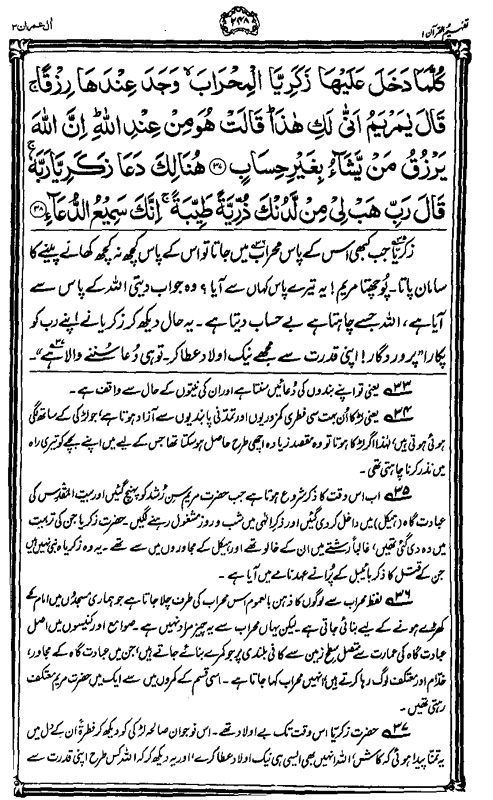 تفہیم القرآن ۱
۲۴۸
اٰل عمرٰن ۳
كُلَّمَا دَخَلَ عَلَيْهَا زَكَرِيَّا الْمِحْرَابَ ۙ وَجَدَ عِنْدَهَا رِزْقًا ۚ
قَالَ يٰمَرْيَمُ اَنّٰى لَكِ هٰذَا ؕ قَالَتْ هُوَ مِنْ عِنْدِ اللّٰهِ ؕ اِنَّ اللّٰهَ
يَرْزُقُ مَنْ يَّشَآءُ بِغَيْرِ حِسَابٍ ﴿۳۷﴾ هُنَالِكَ دَعَا زَكَرِيَّا رَبَّهٗ ۚ
قَالَ رَبِّ هَبْ لِیْ مِنْ لَّدُنْكَ ذُرِّيَّةً طَيِّبَةً ۚ اِنَّكَ سَمِيْعُ الدُّعَآءِ ﴿۳۸﴾
زکریاؑ جب کبھی اس کے پاس محراب میں جاتا تو اس کے پاس کچھ نہ کچھ کھانے پینے کا
سامان پاتا۔ پوچھتا مریم! یہ تیرے پاس کہاں سے آیا؟ وہ جواب دیتی اللہ کے پاس سے
آیا ہے، اللہ جسے چاہتا ہے بے حساب دیتا ہے۔ یہ حال دیکھ کر زکریا نے اپنے رب کو
پکارا ”پروردگار! اپنی قدرت سے مجھے نیک اولاد عطا کر۔ تو ہی دعا سننے والا ہے“۔
۳۳ یعنی تو اپنے بندوں کی دعائیں سنتا ہے اور ان کی نیتوں کے حال سے واقف ہے۔
۳۴ یعنی لڑکا اُن بہت سی فطری کمزوریوں اور تمدنی پابندیوں سے آزاد ہوتا ہے، جو لڑکی کے ساتھ لگی
ہوئی ہوتی ہیں، لہٰذا اگر لڑکا ہوتا تو وہ مقصد زیادہ اچھی طرح حاصل ہوسکتا تھا جس کے لیے میں اپنے بچے کو تیری راہ
میں نذر کرنا چاہتی تھی۔
۳۵ اب اس وقت کا ذکر شروع ہوتا ہے جب حضرت مریم سن رشد کو پہنچ گئیں اور بیت المقدس کی
عبادت گاہ (ہیکل) میں داخل کردی گئیں اور ذکر الٰہی میں شب و روز مشغول رہنے لگیں۔ حضرت زکریا جن کی تربیت
میں وہ دی گئی تھیں، غالباً رشتے میں ان کے خالو تھے اور ہیکل کے مجاوروں میں سے تھے۔ یہ وہ زکریاہ نبی نہیں ہیں
جن کے قتل کا ذکر بائیبل کے پُرانے عہدنامے میں آیا ہے۔
۳۶ لفظ محراب سے لوگوں کا ذہن بالعموم اس محراب کی طرف چلا جاتا ہے جو ہماری مسجدوں میں امام کے
کھڑے ہونے کے لیے بنائی جاتی ہے۔ لیکن یہاں محراب سے یہ چیز مراد نہیں ہے۔ صوامع اور کنیسوں میں اصل
عبادت گاہ کی عمارت سے متصل سطح زمین سے کافی بلندی پر جو کمرے بنائے جاتے ہیں، جن میں عبادت گاہ کے مجاور،
خدام اور معتکف لوگ رہا کرتے ہیں، انہیں محراب کہا جاتا ہے۔ اسی قسم کے کمروں میں سے ایک میں حضرت مریم معتکف
رہتی تھیں۔
۳۷ حضرت زکریاؑ اس وقت تک بے اولاد تھے۔ اس نوجوان صالحہ لڑکی کو دیکھ کر فطرةً ان کے دل میں
یہ تمنا پیدا ہوئی کہ کاش، اللہ انہیں بھی ایسی ہی نیک اولاد عطا کرے، اور یہ دیکھ کر کہ اللہ کس طرح اپنی قدرت سے